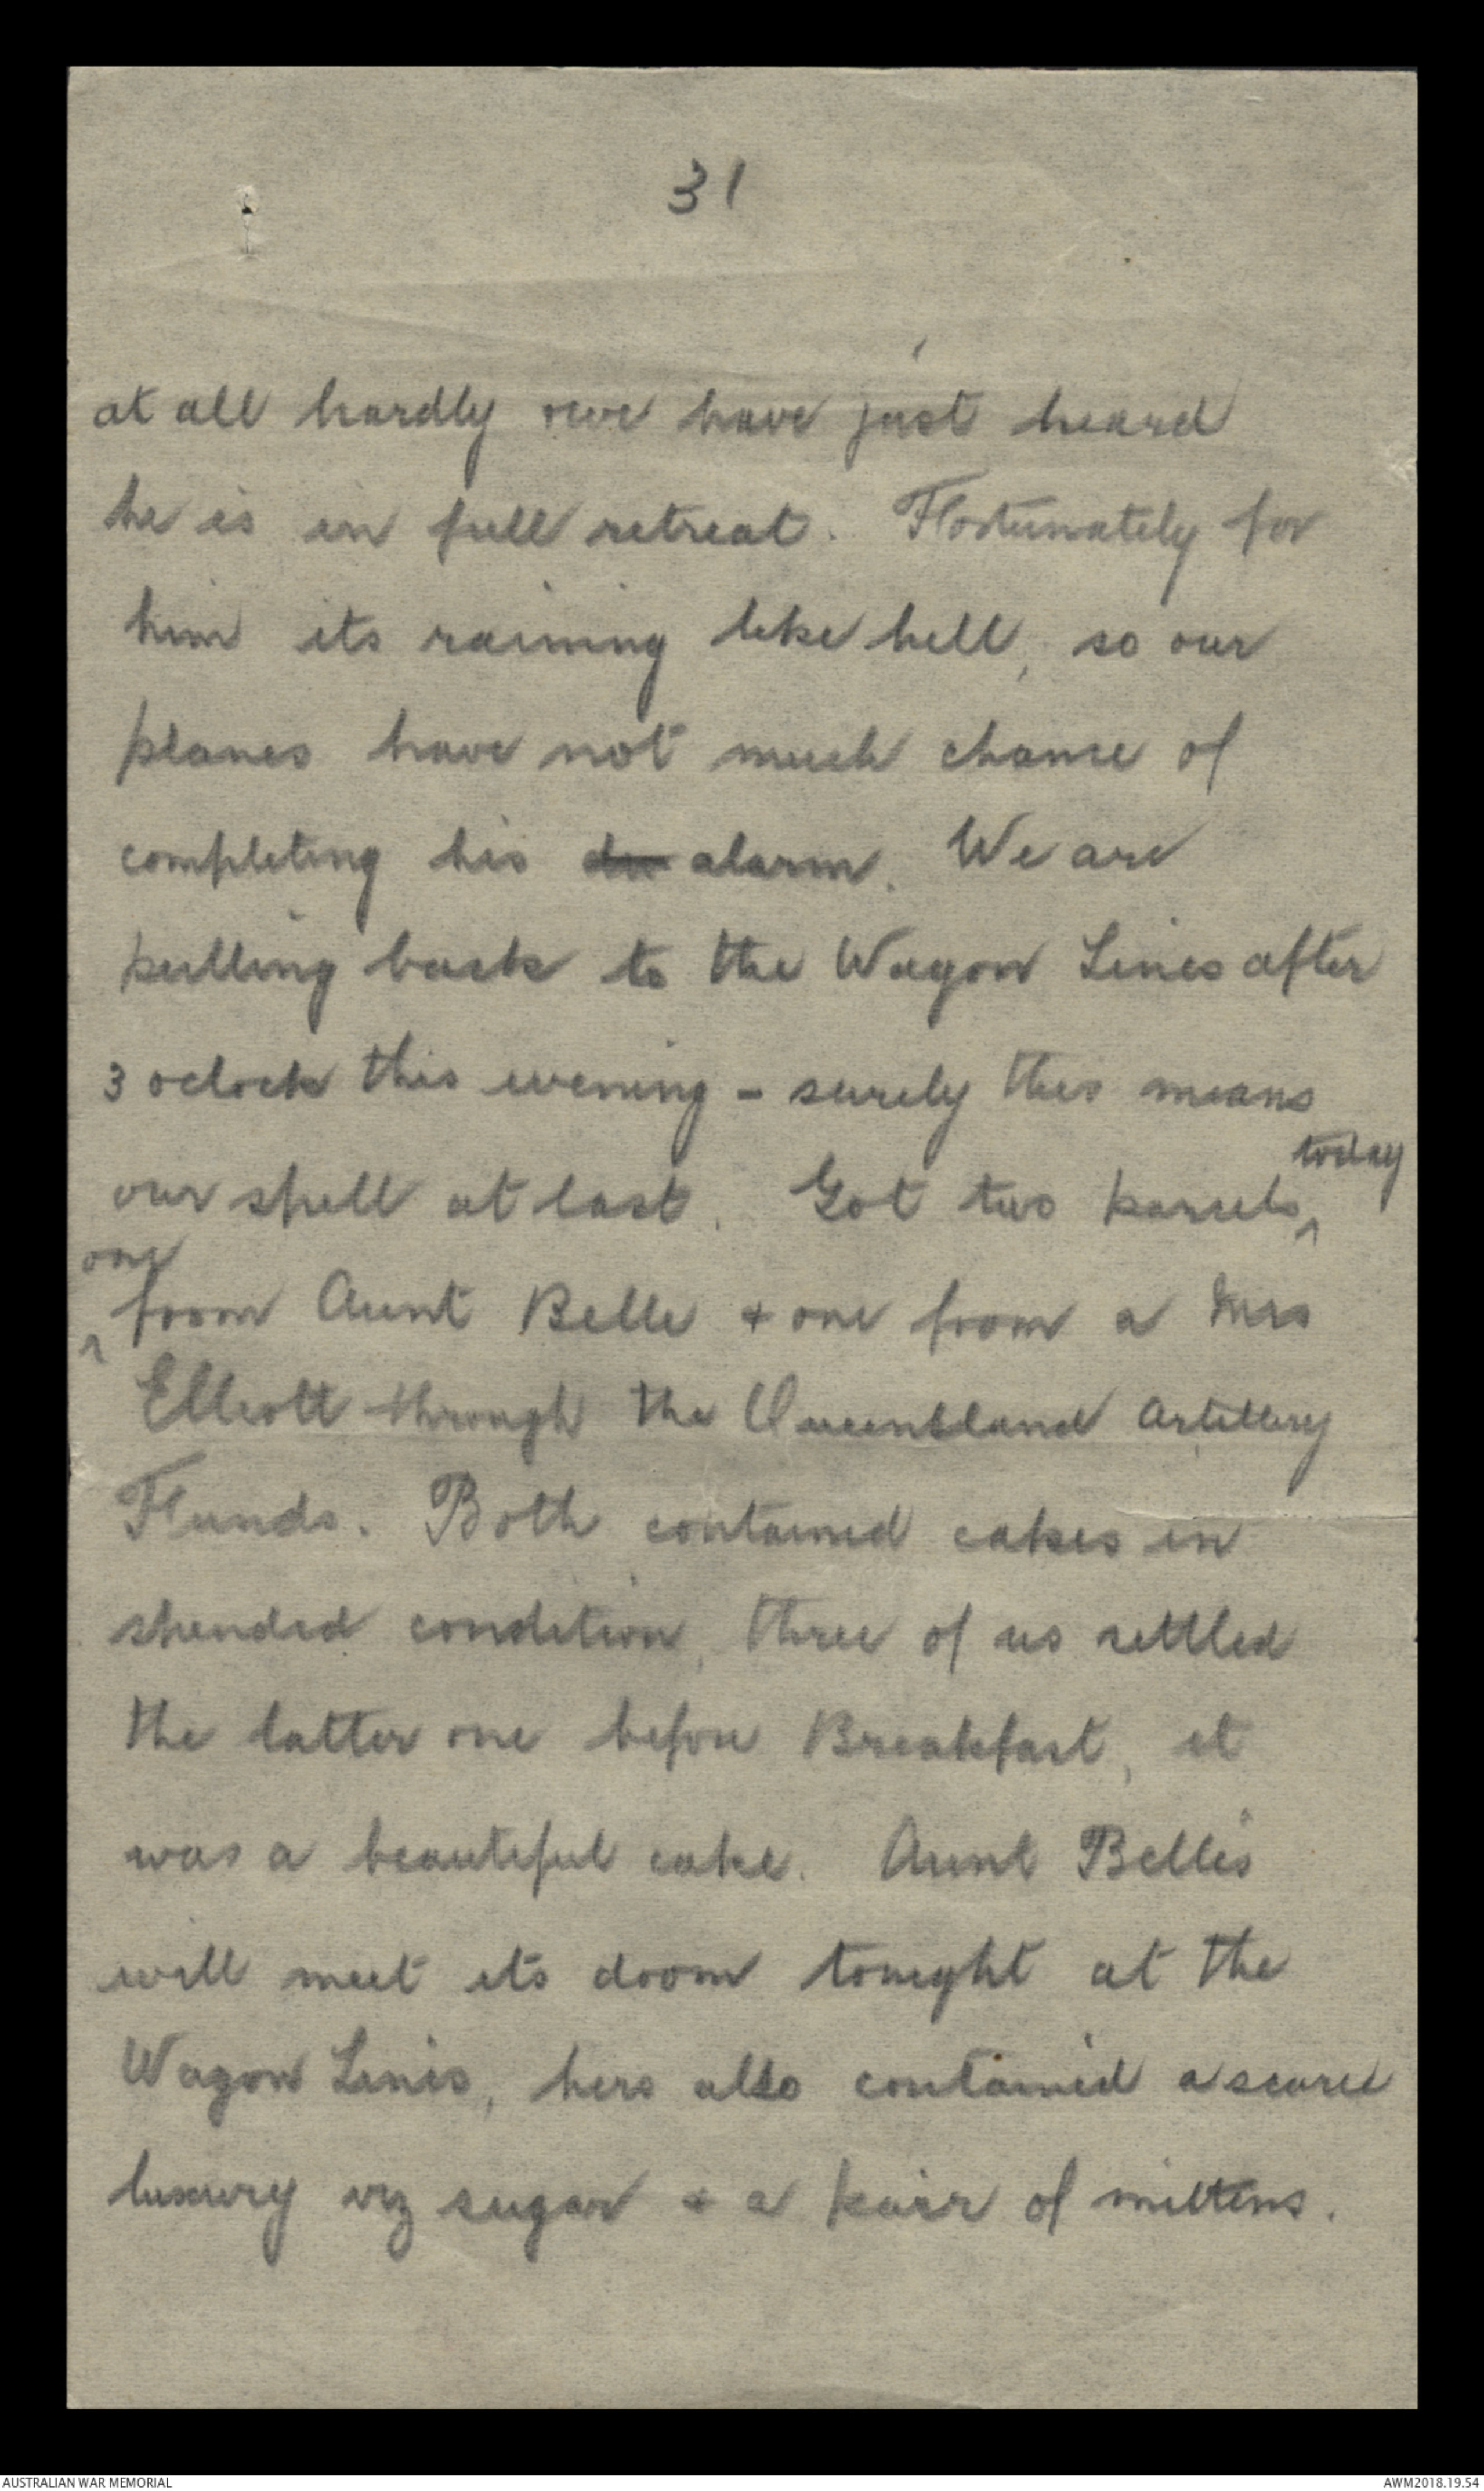 31
at all hardly we have just heard
he is in full retreat. Fortunately for
him its raining like hell, so our
planes have not much chance of
completing his du alarm. We are
pulling back to the Wagon Lines after
3 oclock this evening - surely this means
our spell at last. Got two parcels ^today
^one from Aunt Belle & one from a Mrs
Elliott through the Queensland Artillery
Funds. Both contained cakes in
spended condition, three of us settled
the latter one before Breakfast, it
was a beautiful cake. Aunt Belle's
will meet its doom tonight at the
Wagon Lines, hers also contained a scarce
luxury viz sugar & a pair of mittens.
AUSTRALIAN WAR MEMORIAL
AWM2018.19.54